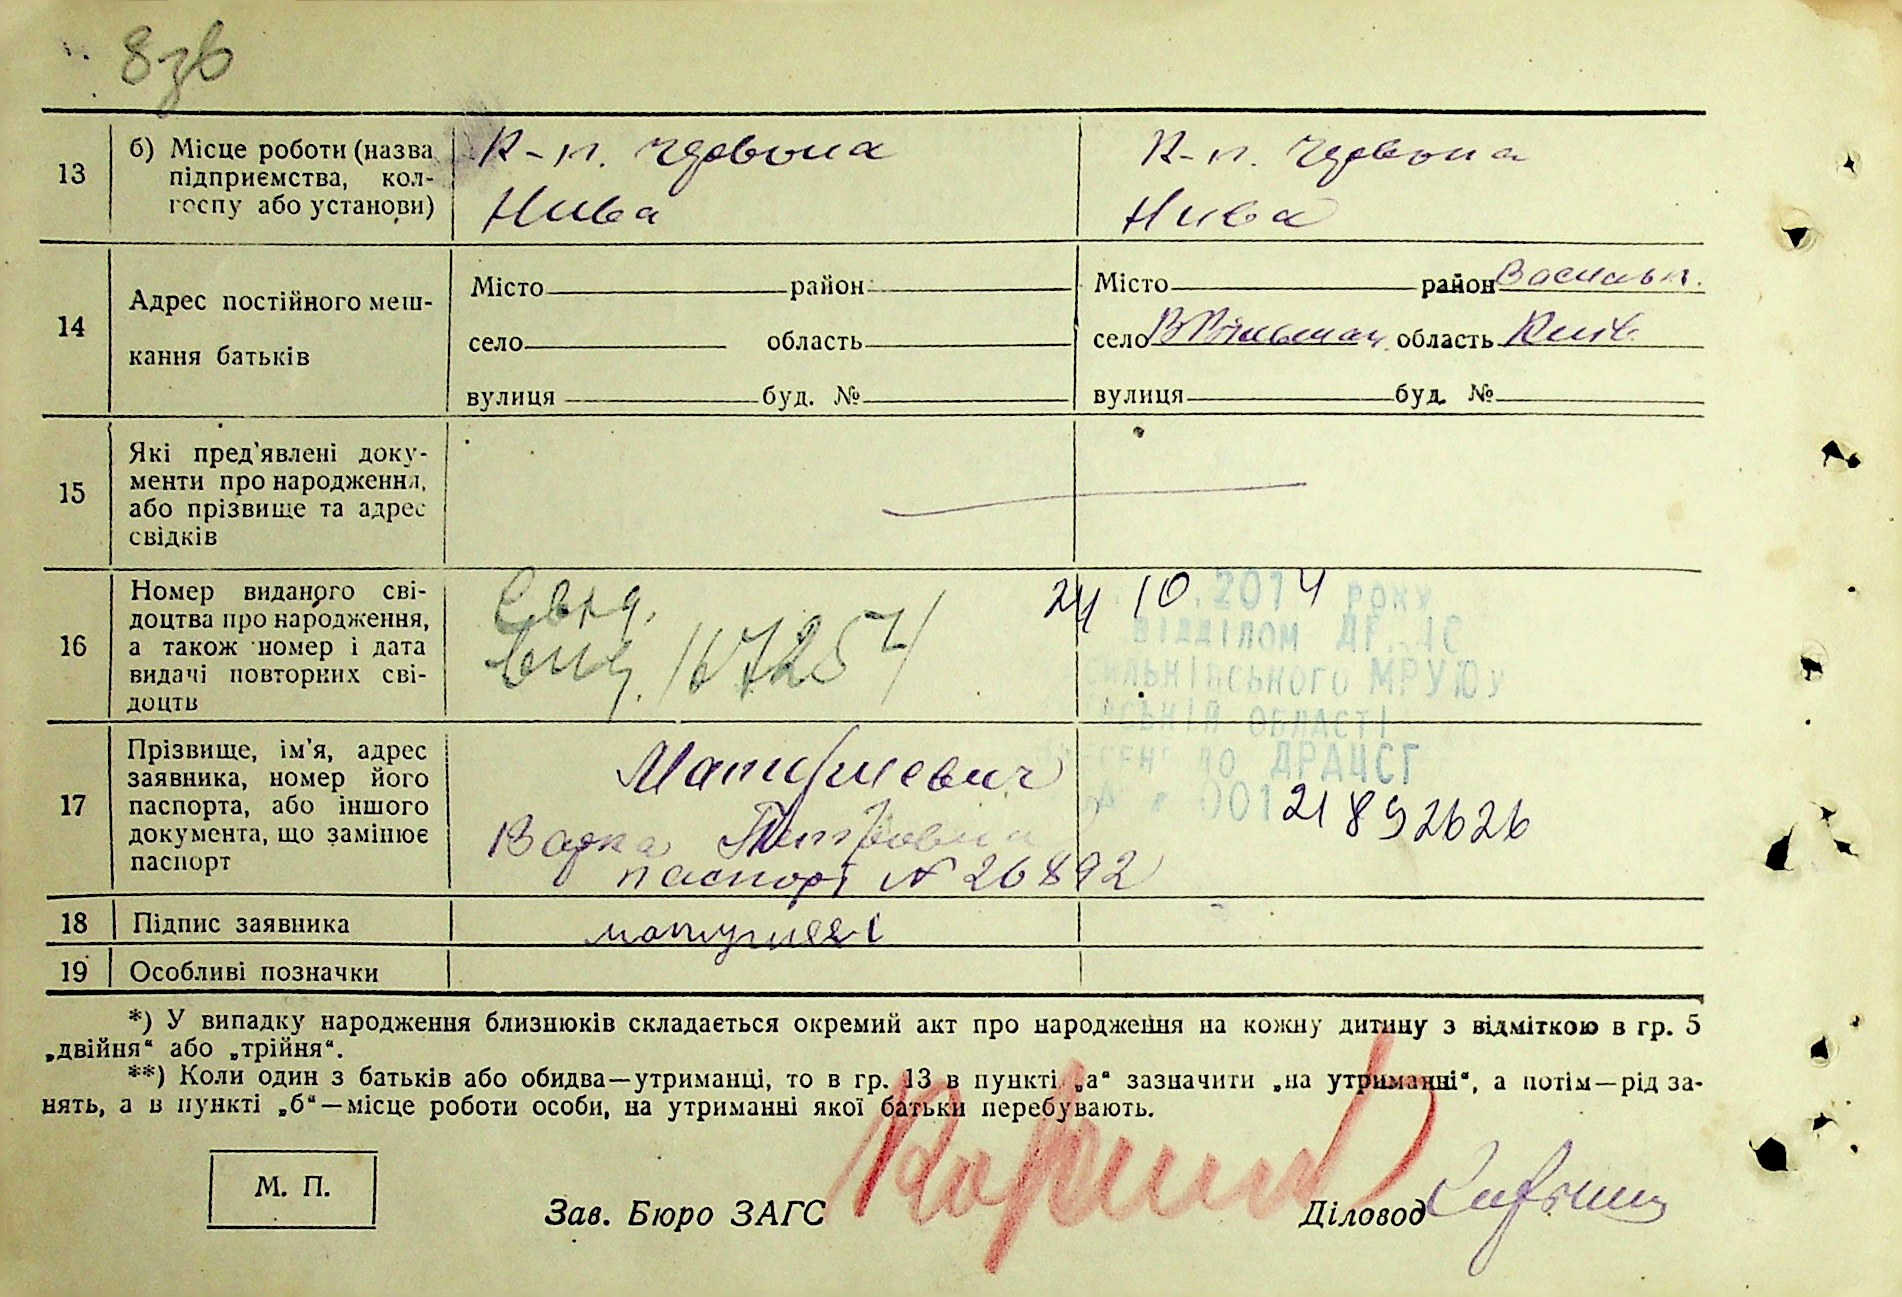 8зв
13
б) Місце роботи (назва підприємства, кол-
госпу або установи)
К-п. Червона
Нива
К-п. Червона
Нива
14
Адрес постійного меш-
кання батьків
Місто район
село область
вулиця буд. №
Місто район Васильк.
село область Київ.
вулиця буд. №
15
Які пред'явлені доку-
менти про народження,
або прізвище та адрес
свідків
16
Номер виданого сві-
доцтва про народження,
а також номер і дата
видачі повторних сві-
доцтв
Свид.
выд. 167254
24 10 .2014 року
ВІДДІЛОМ
СИЛЬКІВСЬКОГО МРУЮ У
ОБЛАСТІ
ДО ДРАЦСГ
001 21892626
17
Прізвище, ім'я, адрес
заявника, номер його
паспорта, або іншого
документа, що замінює
паспорт
Варка Петровна
паспорт № 26892
18 Підпис заявника
19 Особливі позначки
*) У випадку народження близнюків складається окремий акт про народження на кожну дитину з відміткою в гр. 5
„двійня“ або „трійня“.
**) Коли один з батьків або обидва—утриманці, то в гр. 13 в пункті „а“ зазначити „на утриманні“, а потім—рід за-
нять, а в пункті „б“—місце роботи особи, на утриманні якої батьки перебувають.
М. П.
Зав. Бюро ЗАГС
Діловод